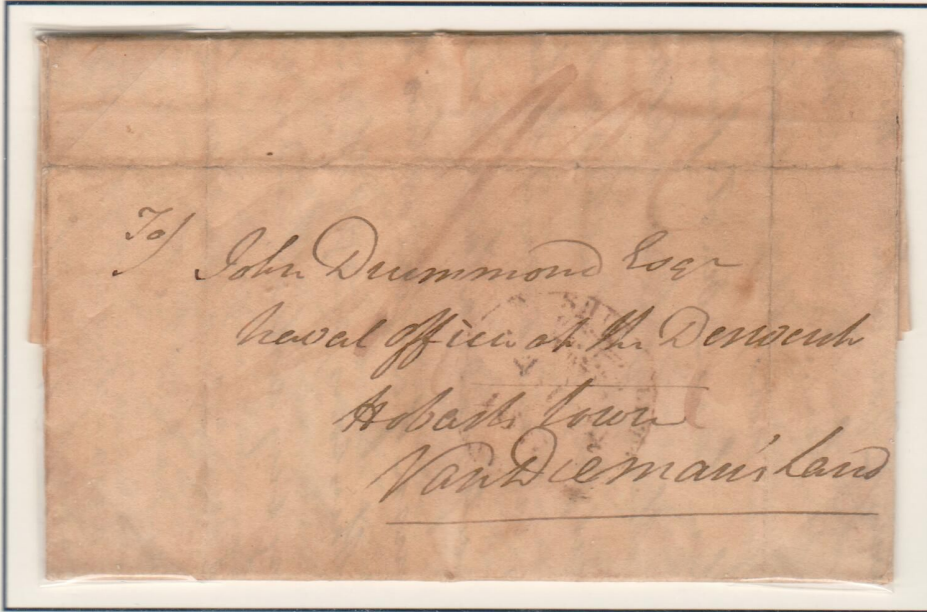 To/ John Drummond Esqr
Naval Officer at the Derwent
Hobart town
Van Dieman's Land